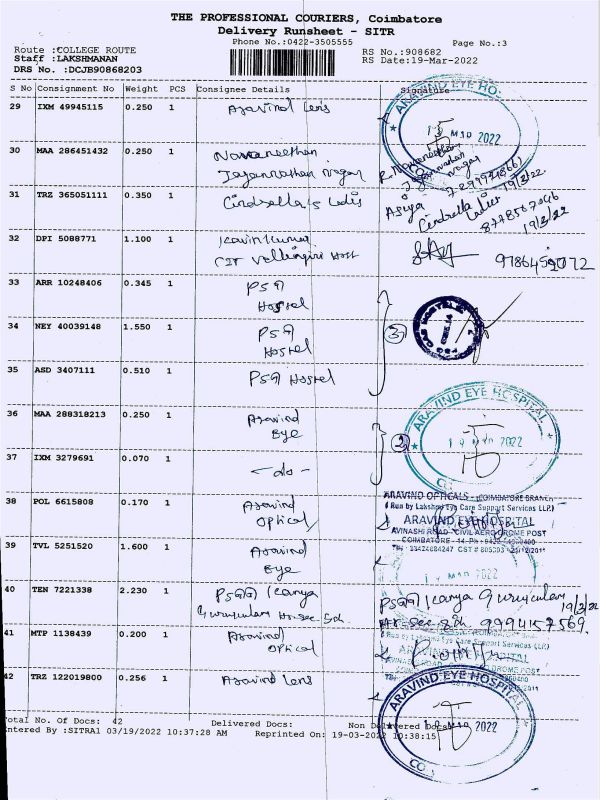 THE PROFESSIONAL COURIERS, Coimbatore
Delivery Runsheet - SITR
Phone No.:0422-3505555
Page No.:3
Route :COLLEGE ROUTE
RS No.:908682
Staff :LAKSHMANAN
RS Date:19-Mar-2022
DRS No. :DCJB90868203
S No Consignment No Weight PCS Consignee Details Signature
29 IXM 49945115 0.250 1 Aravind Lens
ARAVIND EYE HO
19 MAR 2022
30 MAA 286451432 0.250 1 Navaneethan
Jagannathan Nagar
31 TRZ 365051111 0.350 1 Cindrella's Ladis
19/3/22
Cindrella
8778567046
19/3/22
32 DPI 5088771 1.100 1 Kavinkumar
CIT Host
33 ARR 10248406 0.345 1 PSG
Hostel
34 NEY 40039148 1.550 1 PSG
Hostel
3
35 ASD 3407111 0.510 1 PSG Hostel
36 MAA 288318213 0.250 1 Aravind
Eye
2
ARAVIND EYE HOSPITAL
2022
37 IXM 3279691 0.070 1 - do -
38 POL 6615808 0.170 1 Aravind
Optical
ARAVIND OPTICALS - (COIMBATORE BRANCH)
(Run by Lakshmi Eye Care Support Services LLP.)
ARAVIND EYE HOSPITAL
AVINASHI ROAD CIVIL AERODROME POST
COIMBATORE - 14
39 TVL 5251520 1.600 1 Aravind
Eye
MAR 2022
40 TEN 7221338 2.230 1 PSGG Kanya
Gurukulam Hr.Sec Sch
PSGG Kanya Gurukulam 19/3/22
Hr. Sec Sch. 9994157569
41 MTP 1138439 0.200 1 Aravind
Optical
42 TRZ 122019800 0.256 1 Aravind Lens
ARAVIND EYE HOSPITAL
2022
Total No. Of Docs: 42 Delivered Docs: Non Delivered Docs:
Entered By :SITRA1 03/19/2022 10:37:28 AM Reprinted On: 19-03-2022 10:38:15